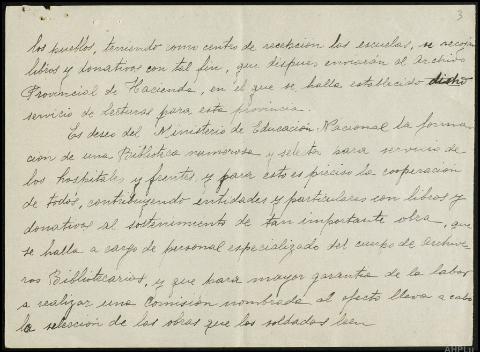 3
los pueblos, teniendo como centro de recepcion las escuelas, se recojan
libros y donativos con tal fin, que despues enviarán al Archivo
Provincial de Hacienda, en el que se halla establecido dicho
servicio de lecturas para esta provincia.
Es deseo del Ministerio de Educacion Nacional la forma-
cion de una Biblioteca numerosa y selecta para servicio de
los hospitales y frentes, y para esto es preciso la cooperación
de todos, contribuyendo entidades y particulares con libros y
donativos al sostenimiento de tan importante obra, que
se halla a cargo de personal especializado del cuerpo de Archive-
ros Bibliotecarios, y que para mayor garantia de la labor
a realizar una Comision nombrada al efecto lleva a cabo
la selección de las obras que los soldados leen